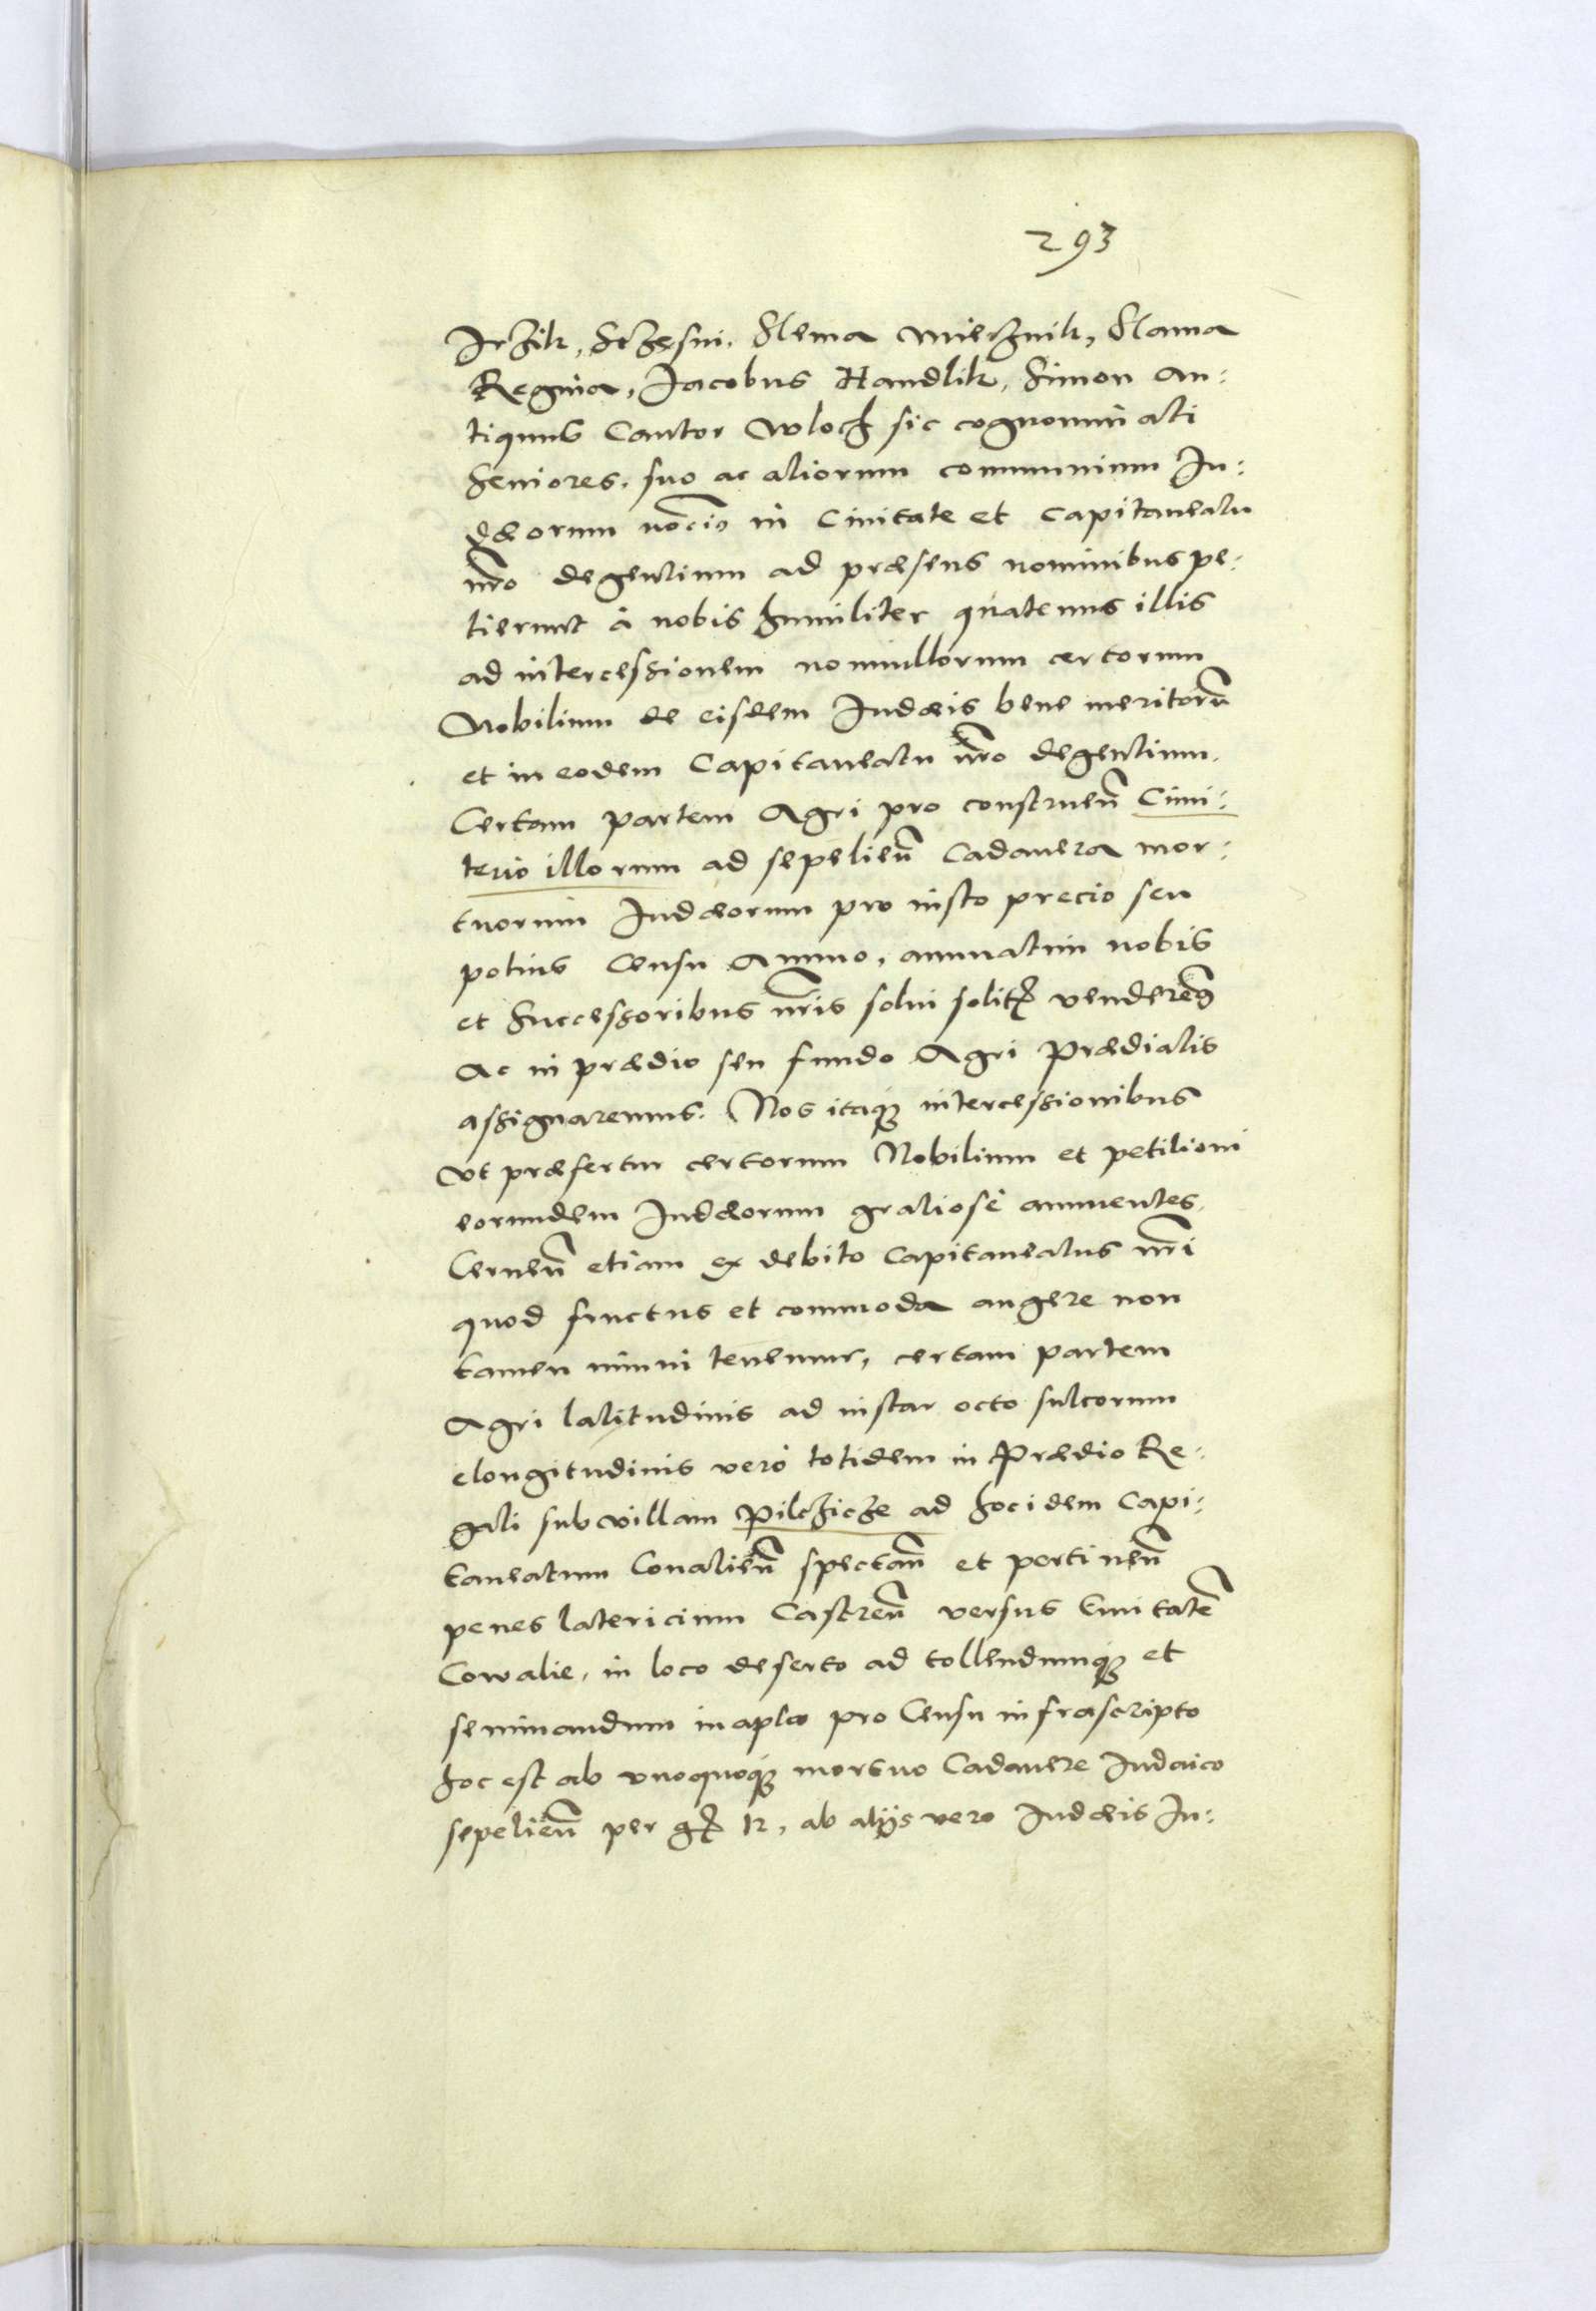 293
Irzik, Sczęsni, Slema Miecznik, Slama
Regina, Jacobus Handlik, Simon An:
tiquus Cantor Wloch sic cognominati
Seniores, suo ac aliorum communium Iu:
dæorum nōīo in Ciuitate et Capitaneatu
nr̃o degentium ad præsens nominibus pe:
tierunt à nobis humiliter quatenus illis
ad intercessionem nonnullorum certorum
Nobilium de eisdem Iudæis bene meritorũ
et in eodem Capitaneatu nr̃o degentium.
Certam partem Agri pro construeñ Cimi:
terio illorum ad sepelieñ Cadauera mor:
tuorum Iudæorum pro iusto precio seu
potius Censu Annuo, annuatim nobis
et Successoribus nr̃is solui solit venderem9
Ac in prædio seu fundo Agri Prædialis
assignaremus. Nos itaq; intercessionibus
vt præfertur certorum Nobilium et petitioni
eorundem Iudæorum gratiosè annuentes,
Cerneñ etiam ex debito Capitaneatus nr̃i
quod fructus et commoda augere non
tamen minui tenemur, certam partem
Agri latitudinis ad instar octo sulcorum
elongitudinis verò totidem in Prædio Re:
gali sub villam Pilczicze ad hocidem Capi:
taneatum Coualieñ spectañ et pertineñ
penes latericium Castreñ versus Ciuitatẽ
Cowalie, in loco deserto ad tollendumq; et
seminandum inapto pro Censu infrascripto
hoc est ab vnoquoq; mortuo Cadauere Iudaico
sepelieñ per g 12, ab alijs vero Iudæis In: